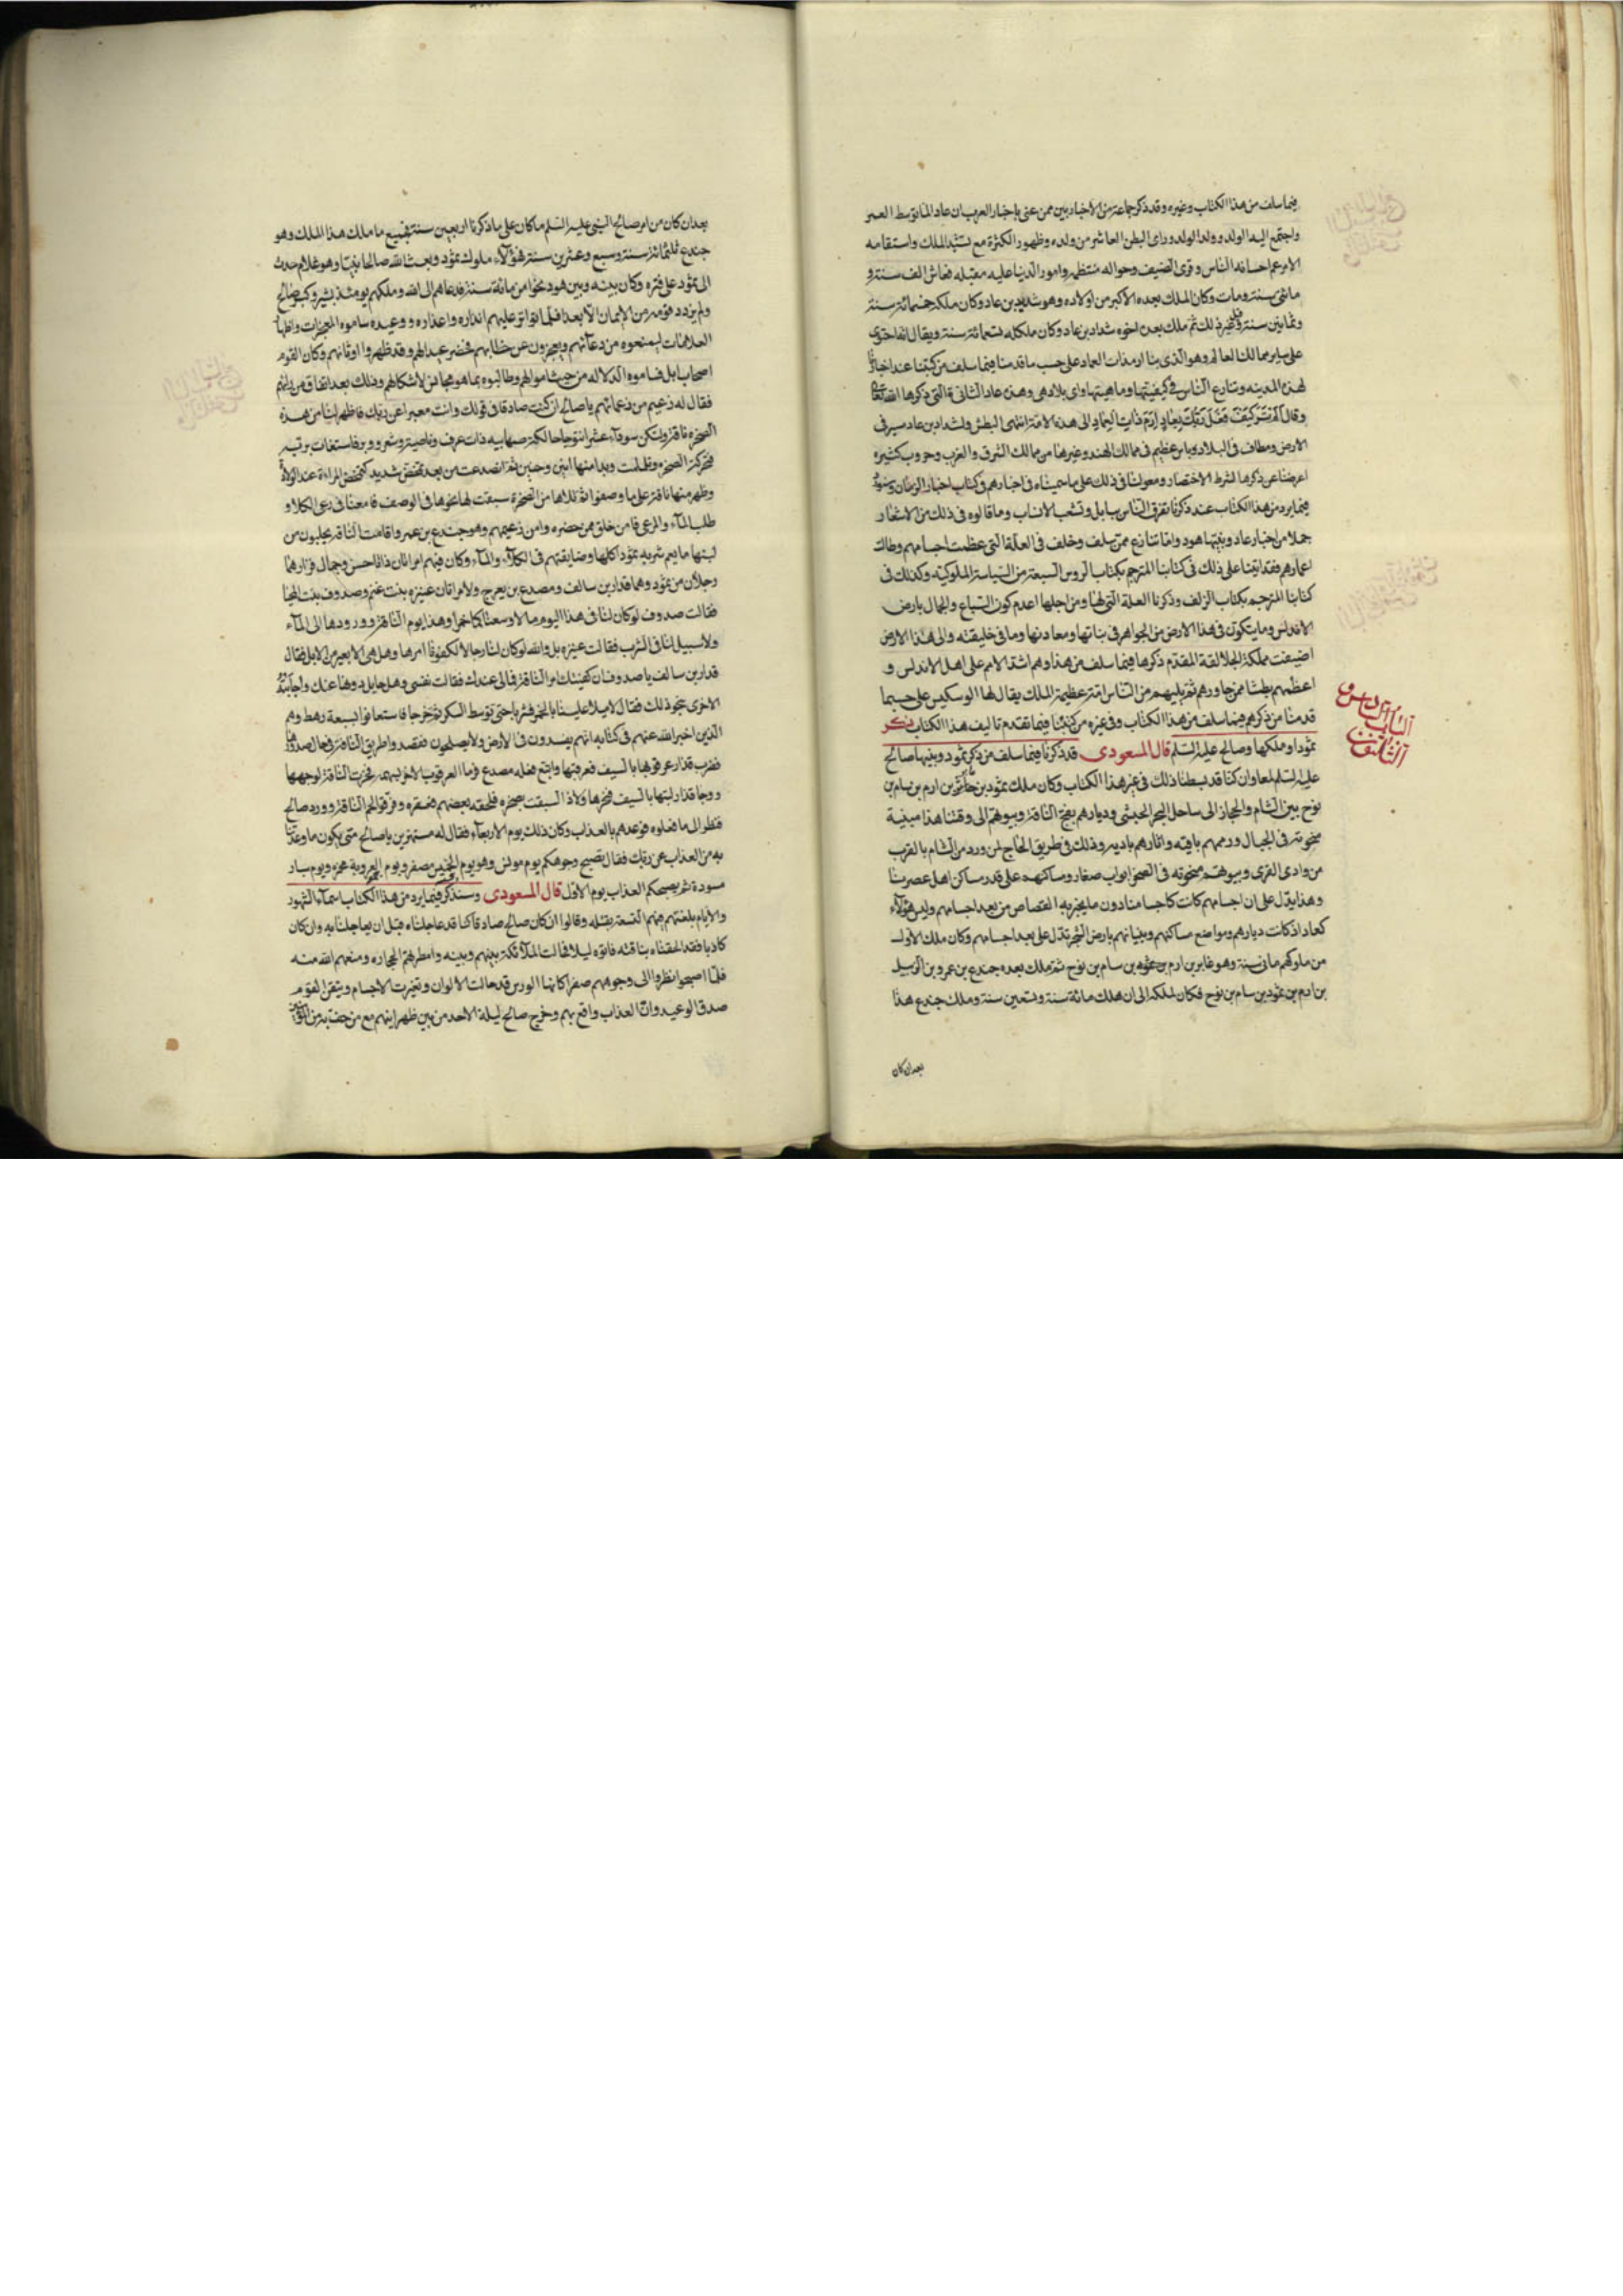 فيما سلف من هذا الكتاب وغيره وقد ذكر جماعة من الاخباريين ممن عنى باخبار العرب ان عاد لما توسط العمر
واجتمع اليه الولد وولد الولد وراى البطن العاشر من ولده وظهور الكثرة مع تشيد الملك واستقامه
الامر عم احسانه الناس وقرى الضيف وحواله منتظمه وامور الدنيا عليه مقبله فعاش الف سنة و
مائتى سنة ومات وكان الملك بعده الاكبر من اولاده وهو شديد بن عاد وكان ملكه خمسمائة سنة
وثمانين سنة وقيل غير ذلك ثم ملك بعده اخوه شداد بن عاد وكان ملكه تسعمائة سنة ويقال انه احتوى
على ساير ممالك العالم وهو الذى بنا ارم ذات العماد على حسب ما قدمنا فيما سلف من كتبنا عند اخبارنا
لهذه المدينه وتنازع الناس فى كيفيتها وماهيتها واى بلاد هى وهذه عاد الثانية التى ذكرها الله تعالى
وقال اَلَمْ تَرَ كَيْفَ فَعَلَ رَبُّكَ بِعَادٍ اِرَمَ ذَاتِ الْعِمَادِ الى هذه الامة انتهى البطش ولشداد بن عاد سير فى
الارض ومطاف فى البلاد وباس عظيم فى ممالك الهند وغيرها من ممالك الشرق والغرب وحروب كثيره
اعرضنا عن ذكرها لشرط الاختصار ومعولنا فى ذلك على ما سميناه فى اخبارهم فى كتاب اخبار الزمان وسنورد
فيما يرد من هذا الكتاب عند ذكرنا تفرق الناس ببابل وتشعب الانساب وما قالوه فى ذلك من الاشعار
جملا من اخبار عاد ونبيها هود واما تنازع ممن سلف وخلف فى العلة التى عظمت اجسامهم وطالت
اعمارهم فقد اتينا على ذلك فى كتابنا المترجم بكتاب الروس السبعة من السياسة الملوكيه وكذلك فى
كتابنا المترجم بكتاب الزلف وذكرنا العلة التى لها ومن اجلها اعدم كون السباع والجمال بارض
الاندلس وما يتكون فى هذا الارض من الجواهر فى نباتها ومعادنها وما فى خليقته والى هذا الارض
اضيفت مملكة الجلالقة المقدم ذكرها فيما سلف من هذا وهم اشد الامم على اهل الاندلس و
اعظمهم بطشا ممن جاورهم ثم يليهم من الناس امة عظيمة الملك يقال لها الوسكيس على حسبما
قدمنا من ذكرهم فيما سلف من هذا الكتاب وفى غيره من كتبنا فيما تقدم تاليف هذا الكتاب ذكر
الباب السادس والثلثون
ثمود وملكها وصالح عليه السلم قال المسعودى قد ذكرنا فيما سلف من ذكر ثمود ونبيها صالح
عليه السلم لمعا وان كنا قد بسطنا ذلك فى غير هذا الكتاب وكان ملك ثمود بن عابر بن ارم بن سام بن
نوح بين الشام والحجاز الى ساحل البحر الحبشى وديارهم بفج الناقة وبيوتهم الى وقتنا هذا مبنية
منحوتة فى الجبال ورممهم باقيه واثارهم باديه وذلك فى طريق الحاج لمن ورد من الشام بالقرب
من وادى القرى وبيوتهم منحوته فى الصخر ابواب صغار ومساكنهم على قدر مساكن اهل عصرنا
وهذا يدل على ان اجسامهم كانت كاجسامنا دون ما يخبر به القصاص من بعد اجسامهم وليس هؤلاء
كعاد اذ كانت ديارهم ومواضع مساكنهم وبنيانهم بارض الشحر تدل على بعد اجسامهم وكان ملك الاول
من ملوكهم مائتى سنة وهو عابر بن ارم بن ثمود بن سام بن نوح ثم ملك بعده جندع بن عمرو بن الدبيل
بن ارم بن ثمود بن سام بن نوح فكان ملكه الى ان هلك مائة سنة وتسعين سنة وملك جندع هذا
بعد ان كان
بعد ان كان من امر صالح النبى عليه السلم ما كان على ما ذكرنا اربعين سنة فجميع ما ملك هذا الملك وهو
جندع ثلثمائة سنة وسبع وعشرين سنة فهؤلاء ملوك ثمود وبعث الله صالحا نبيا وهو غلام حدث
الى ثمود على فتره وكان بينه وبين هود نحوا من مائة سنة فدعاهم الى الله وملكهم يومئذ بشر وكبر صالح
ولم يزدد قومه من الايمان الا بعدا فلما تواتر عليهم انذاره واعذاره ووعيده ساموه المعجزات واظهار
العلامات ليمنعوه من دعائهم ويعجزون عن خطابهم فحضر عيد لهم وقد ظهروا اوثانهم وكان القوم
اصحاب ابل فساموه الدلاله من حيث اموالهم وطالبوه بما هو مجانس لاشكالهم وذلك بعد اتفاق من رايهم
فقال له زعيم من زعمائهم يا صالح ان كنت صادقا فى قولك وانت معبرا عن ربك فاظهر لنا من هذه
الصخره ناقة ولتكن سوداء عشرا نتوجا حالكة صهابيه ذات عرف وناصية وشعر ووبر فاستغاث بربه
فتحركت الصخره وتململت وبدا منها انين وحنين ثم انصدعت من بعد تمخض شديد كتمخض المراءة عند الولادة
وظهر منها ناقة على ما وصفوا ثم تلاها من الصخرة سبقت لها نحوها فى الوصف فامعنا فى رعى الكلاو
طلب الماء والمرعى فامن خلق ممن حضره وامن زعيمهم وهو جندع بن عمرو واقامت الناقه يحلبون من
لبنها ما يعم شربه ثمود اكلها وضايقتهم فى الكلاء والماء وكان فيهم امراتان ذاتا حسن وجمال فزارهما
رجلان من ثمود وهما قدار بن سالف ومصدع بن يعرج والامراتان عنيزه بنت غنم وصدوف بنت المحيا
فقالت صدوف لو كان لنا فى هذا اليوم ما لاوسعناكما خمرا وهذا يوم الناقة وورودها الى الماء
ولا سبيل لنا فى الشرب فقالت عنيزه بل والله لو كان لنا رجالا لكفونا امرها وهل هى الا بعير من الابل فقال
قدار بن سالف يا صدوف ان كفيتك امر الناقة فمالى عندك فقالت نفسى وهل حايل دونها عنك واجابت
الاخرى بنحو ذلك فقال لا ميلا علينا بالخمر فشربا حتى توسط السكر ثم خرجا فاستعانوا بسبعة رهط وهم
الذين اخبر الله عنهم فى كتابه انهم يفسدون فى الارض ولا يصلحون فقصدوا طريق الناقة فى حال صدورها
فضرب قدار عرقوبها بالسيف فعرقبها واتبع فعله مصدع فرما العرقوب الاخر بسهم فخرت الناقة لوجهها
ووجا قدار لبتها بالسيف فنحرها ولاذ السقب بصخره فلحقه بعضهم فعقره وفرقوا لحم الناقة وورد صالح
فنظر الى ما فعلوه فوعدهم بالعذاب وكان ذلك يوم الاربعاء فقال له مستهزين يا صالح متى يكون ما وعدتنا
به من العذاب عن ربك فقال تصبح وجوهكم يوم مونس وهو يوم الخميس مصفره ويوم العروبة محمره ويوم سبار
مسودة ثم يصبحكم العذاب يوم الاول قال المسعودى وسنذكر فيما يرد من هذا الكتاب اسماء الشهور
والايام بلغتهم فهم التسعة بقتله وقالوا ان كان صالح صادقا كنا قد عاجلناه قبل ان يعاجلنا به وان كان
كاذبا فقد الحقناه بناقته فاتوه ليلا فحالت الملائكة بينهم وبينه وامطرتهم الحجاره ومنعهم الله منه
فلما اصبحوا نظروا الى وجوههم صفرا كانها الورس قد حالت الالوان وتغيرت الاجسام وتيقن القوم
صدق الوعيد وان العذاب واقع بهم وخرج صالح ليلة الاحد من بين ظهرانيهم مع من خف به من المؤمنين